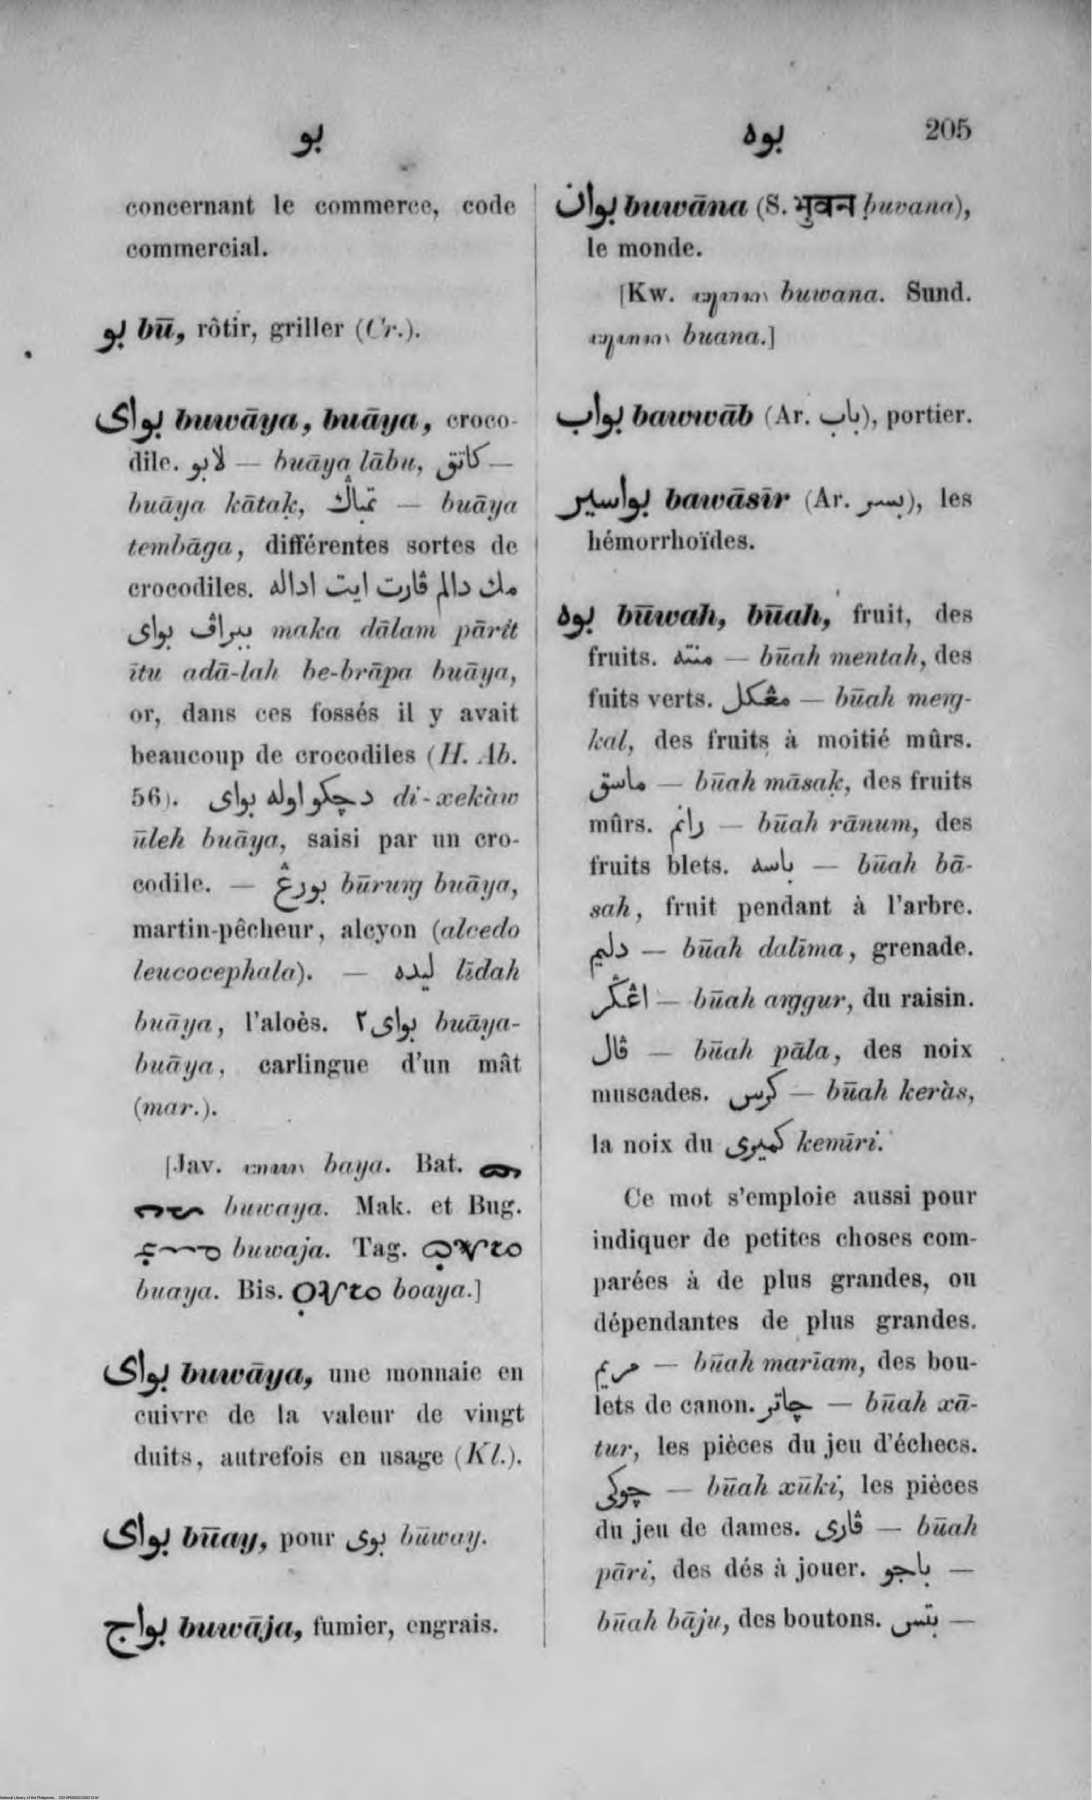 بو
بوه
205
concernant le commerce, code
commercial.
بو bū, rôtir, griller (Cr.).
بواى buwāya, buāya, croco-
dile. لابو — buāya lābu, كاتق —
buāya kātaḳ, تمباڬ — buāya
tembāga, différentes sortes de
crocodiles. مك دالم ڤارت ايت اداله
ببراڤ بواى maka dālam pārit
ītu adā-lah be-brāpa buāya,
or, dans ces fossés il y avait
beaucoup de crocodiles (H. Ab.
56). دچكو اوله بواى di-xekàw
ūleh buāya, saisi par un cro-
codile. — بورڠ būruŋ buāya,
martin-pêcheur, alcyon (alcedo
leucocephala). — ليده līdah
buāya, l'aloès. بواى٢ buāya-
buāya, carlingue d'un mât
(mar.).
[Jav. baya. Bat.
buwaya. Mak. et Bug.
buwaja. Tag.
buaya. Bis. boaya.]
بواى buwāya, une monnaie en
cuivre de la valeur de vingt
duits, autrefois en usage (Kl.).
بواى būay, pour بوى būway.
بواج buwāja, fumier, engrais.
بوان buwāna (S. भुवन ḅuvana),
le monde.
[Kw. buwana. Sund.
buana.]
بواب bawwāb (Ar. باب), portier.
بواسير bawāsīr (Ar. بسر), les
hémorrhoïdes.
بوه būwah, būah, fruit, des
fruits. منته — būah mentah, des
fuits verts. مڠكل — būah meŋ-
kal, des fruits à moitié mûrs.
ماسق — būah māsaḳ, des fruits
mûrs. رانم — būah rānum, des
fruits blets. باسه — būah bā-
sah, fruit pendant à l'arbre.
دليم — būah dalīma, grenade.
اڠڬر — būah aŋgur, du raisin.
ڤال — būah pāla, des noix
muscades. كرس — būah keràs,
la noix du كميرى kemīri.
Ce mot s'emploie aussi pour
indiquer de petites choses com-
parées à de plus grandes, ou
dépendantes de plus grandes.
مريم — būah mariam, des bou-
lets de canon. چاتر — būah xā-
tur, les pièces du jeu d'échecs.
چوكى — būah xūki, les pièces
du jeu de dames. ڤارى — būah
pāri, des dés à jouer. باجو —
būah bāju, des boutons. بتس —